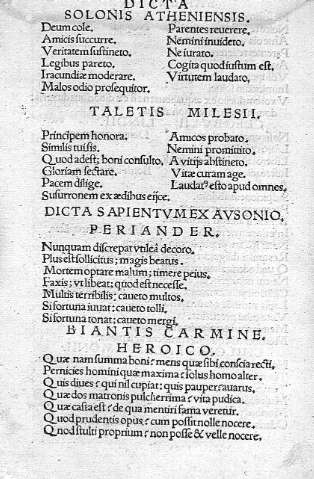 DICTA
SOLONIS ATHENIENSIS.
Deum cole. Parentes reuerere.
Amicis succurre. Nemini inuideto.
Veritatem sustineto. Ne iurato.
Legibus pareto. Cogita quod iustum est.
Iracundiæ moderare. Virtutem laudato.
Malos odio prosequitor.
TALETIS MILESII.
Principem honora. Amicos probato.
Similis tui sis. Nemini promittito.
Quod adest; boni consulto. A vitijs abstineto.
Gloriam sectare. Vitæ curam age.
Pacem dilige. Laudatꝰ esto apud omnes.
Susurronem ex ædibus eijce.
DICTA SAPIENTVM EX AVSONIO.
PERIANDER.
Nunquam discrepat vtile à decoro.
Plus est sollicitus; magis beatus.
Mortem optare malum; timere peius.
Faxis; vt libeat; quod est necesse.
Multis terribilis; caueto multos.
Si fortuna iuuat; caueto tolli.
Si fortuna tonat; caueto mergi.
BIANTIS CARMINE.
HEROICO.
Quæ nam summa boni? mens quæ sibi conscia recti.
Pernicies homini quæ maxima? solus homo alter.
Quis diues? qui nil cupiat: quis pauper? auarus.
Quæ dos matronis pulcherrima? vita pudica.
Quæ casta est? de qua mentiri fama veretur.
Quod prudentis opus? cum possit nolle nocere.
Quod stulti proprium? non posse & velle nocere.